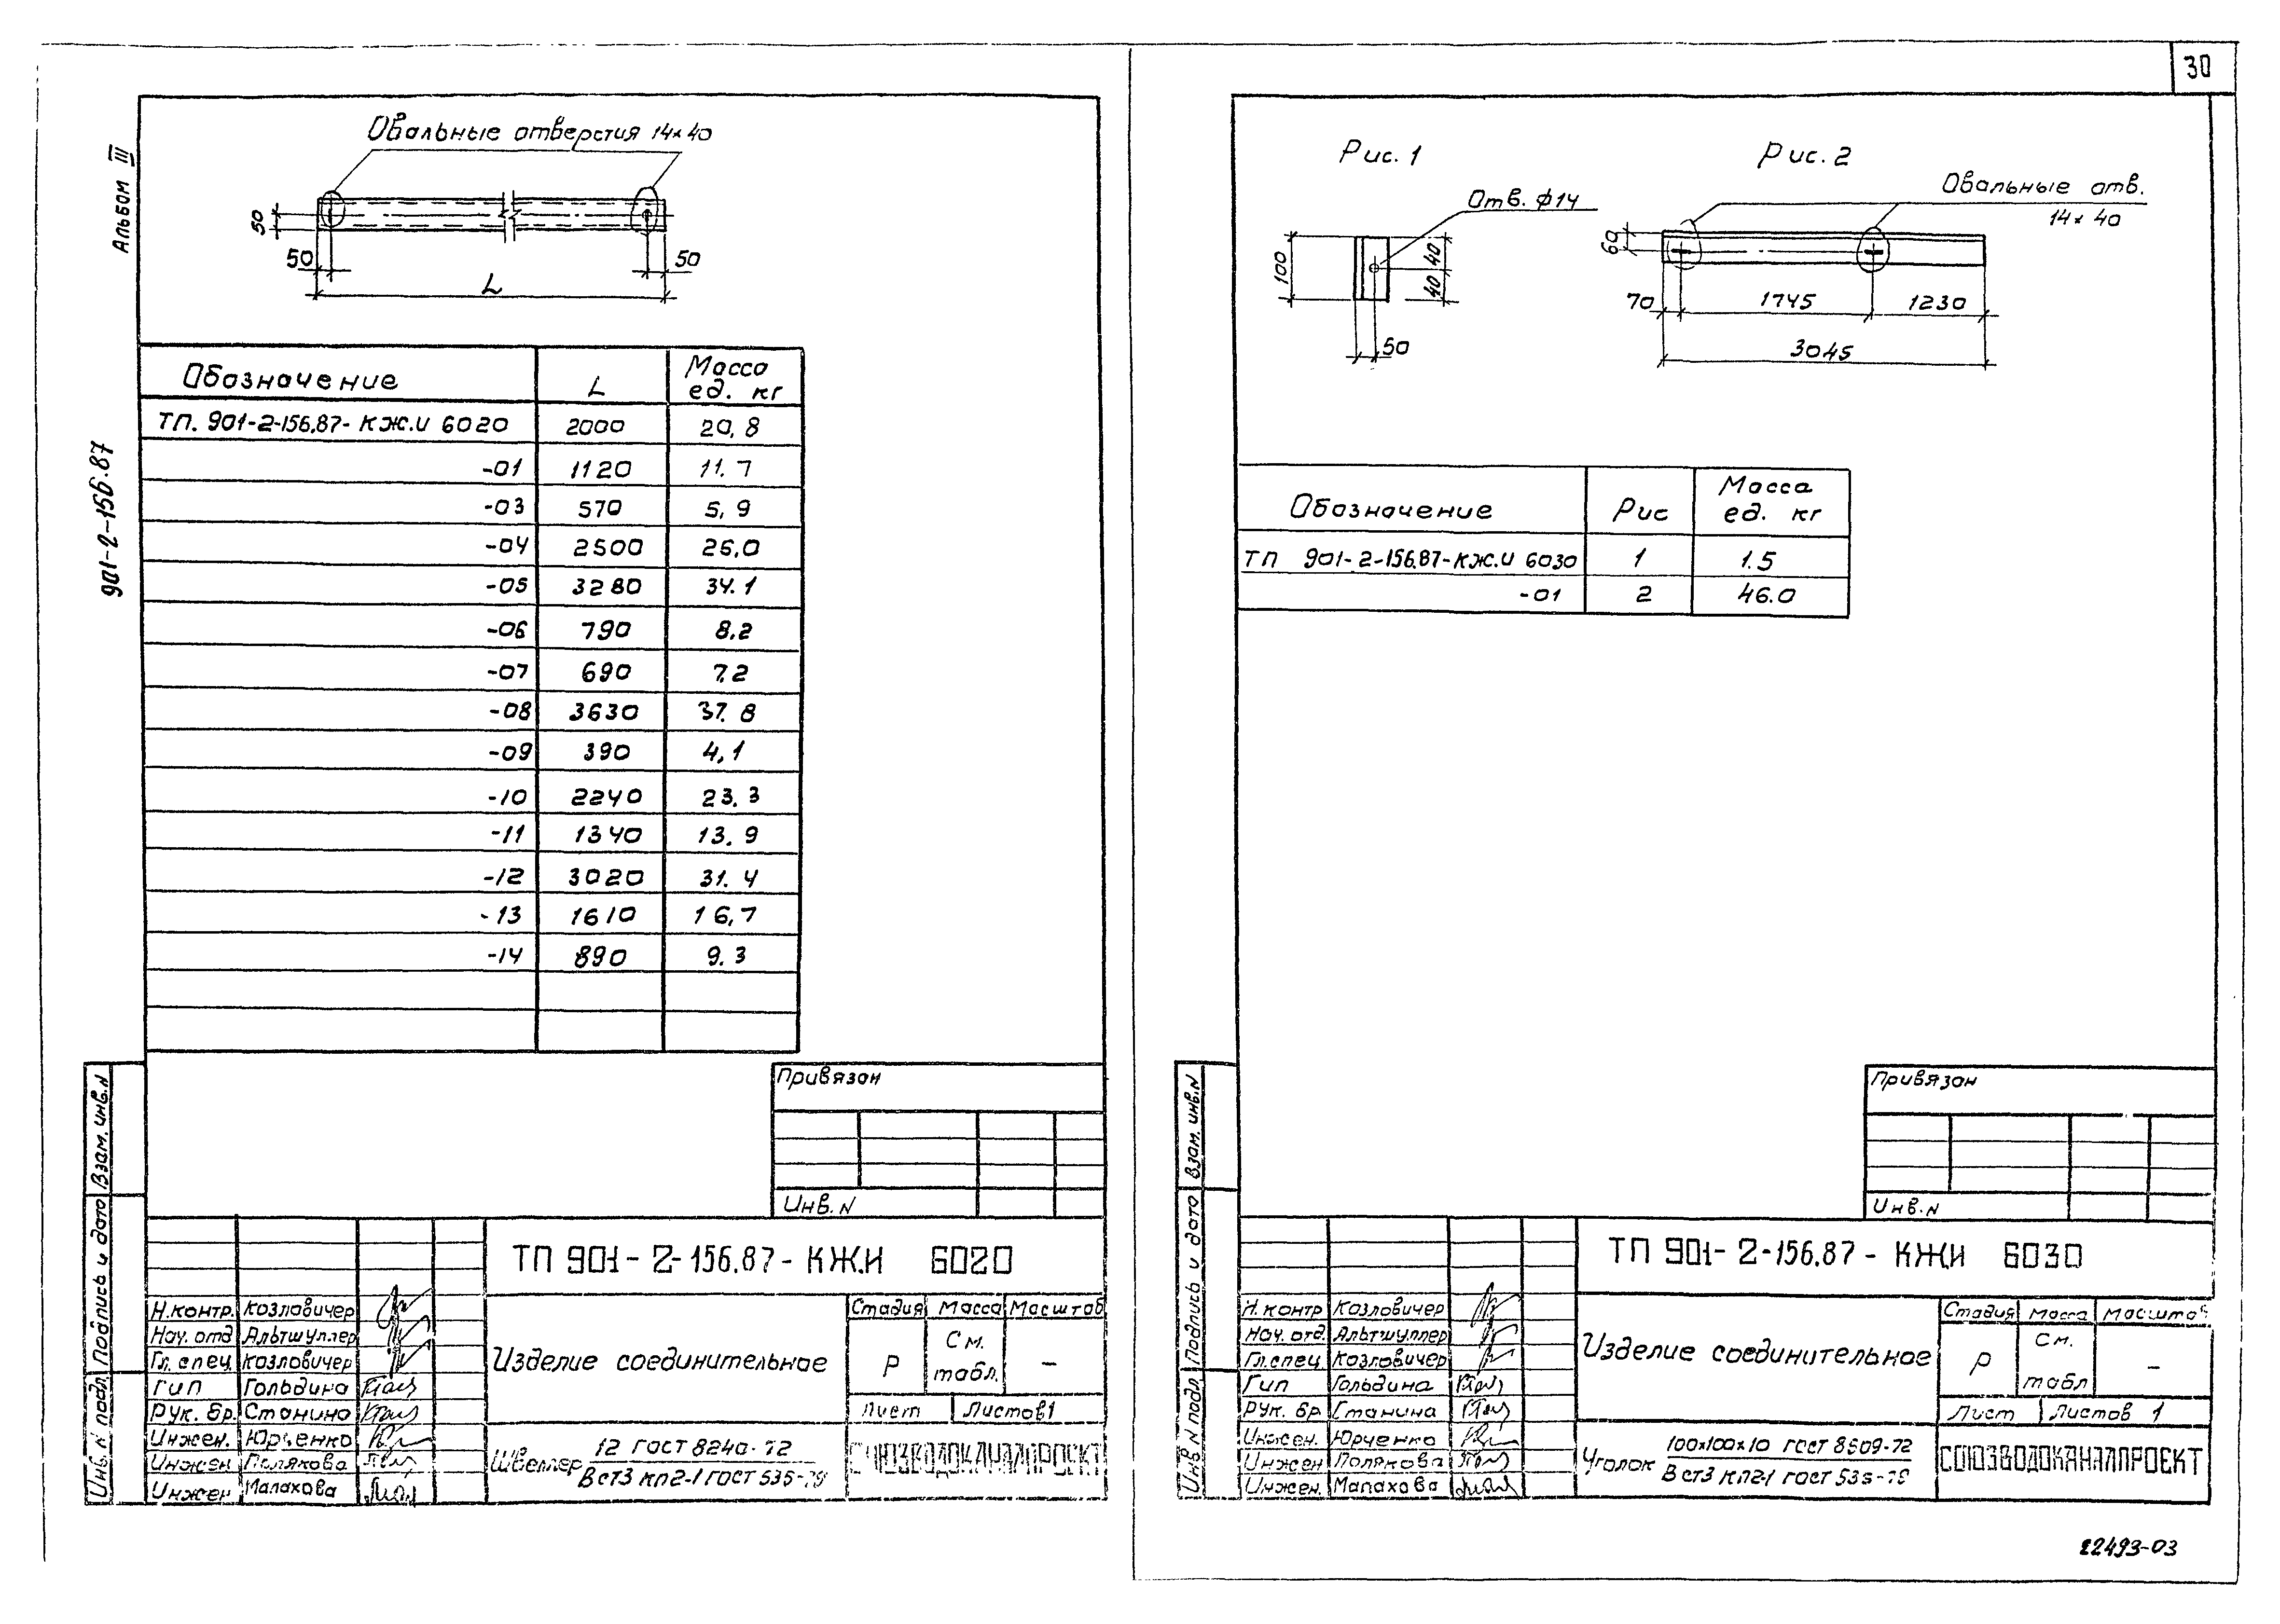 30
Альбом III
901-2-156.87
Овальные отверстия 14×40
50
50
50
L
Обозначение L Масса ед. кг
ТП. 901-2-156.87-КЖ.И 6020 2000 20,8
-01 1120 11.7
-03 570 5,9
-04 2500 26,0
-05 3280 34.1
-06 790 8.2
-07 690 7.2
-08 3630 37.8
-09 390 4,1
-10 2240 23.3
-11 1340 13.9
-12 3020 31.4
-13 1610 16,7
-14 890 9.3
Привязан
Инв. N
Взам. инв. N
Подпись и дата
Инв. N подл.
ТП 901-2-156.87-КЖ.И 6020
Н.контр. Козловичер
Нач. отд Альтшуллер
Гл. спец. Козловичер
Гип Гольдина
Рук. бр. Станина
Инжен. Юрченко
Инжен Полякова
Инжен Малахова
Изделие соединительное
Стадия Масса Масштаб
Р См. табл. –
Лист Листов 1
Швеллер 12 ГОСТ 8240-72
ВСт3 кп2-1 ГОСТ 535-79
СОЮЗВОДОКАНАЛПРОЕКТ
Рис. 1
Отв. ф14
100
40
40
50
Рис. 2
Овальные отв.
14×40
60
70
1745
1230
3045
Обозначение Рис Масса ед. кг
ТП 901-2-156.87-КЖ.И 6030 1 1.5
-01 2 46.0
Привязан
Инв. N
Взам. инв. N
Подпись и дата
Инв N подл
ТП 901-2-156.87-КЖ.И 6030
Н.контр Козловичер
Нач. отд. Альтшуллер
Гл.спец Козловичер
Гип Гольдина
Рук. бр Станина
Инжен. Юрченко
Инжен Полякова
Инжен. Малахова
Изделие соединительное
Стадия Масса Масштаб
Р См. табл –
Лист Листов 1
Уголок 100×100×10 ГОСТ 8509-72
ВСт3 кп2-1 ГОСТ 535-79
СОЮЗВОДОКАНАЛПРОЕКТ
22493-03